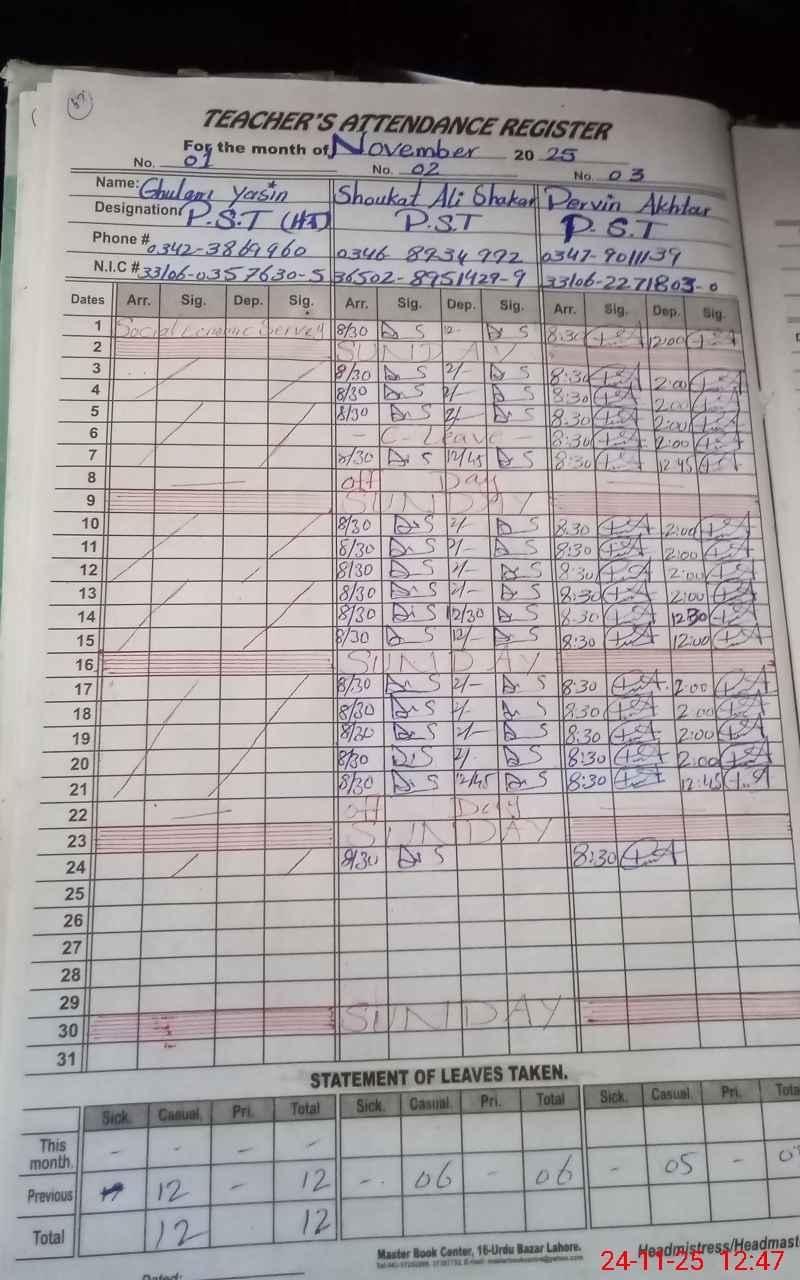 TEACHER'S ATTENDANCE REGISTER
For the month of November 20 25
No. 01 No. 02 No. 03
Name: Ghulam Yasin Shoukat Ali Shakar Pervin Akhtar
Designation P.S.T (HT) P.S.T P.S.T
Phone # 0342-3869960 0346 8234992 0347-9011139
N.I.C # 33106-0357630-5 36502-8951429-9 33106-2271803-0
Dates Arr. Sig. Dep. Sig. Arr. Sig. Dep. Sig. Arr. Sig. Dep. Sig.
1 Social Economic Servey 8/30 S 12- S 8:30 12:00
2 SUNDAY
3 8/30 S 2/- S 8:30 2:00
4 8/30 S 2/- S 8:30 2:00
5 8/30 S 2/- S 8:30 2:00
6 - C-Leave - 8:30 2:00
7 8/30 S 12/45 S 8:30 12:45
8 off Day
9 SUNDAY
10 8/30 S 2/- S 8:30 2:00
11 8/30 S 2/- S 8:30 2:00
12 8/30 S 2/- S 8:30 2:00
13 8/30 S 2/- S 8:30 2:00
14 8/30 S 12/30 S 8:30 12:30
15 8/30 S 12/- S 8:30 12:00
16 SUNDAY
17 8/30 S 2/- S 8:30 2:00
18 8/30 S 2/- S 8:30 2:00
19 8/30 S 2/- S 8:30 2:00
20 8/30 S 2/- S 8:30 2:00
21 8/30 S 12/45 S 8:30 12:45
22 off Day
23 SUNDAY
24 8/30 S 8:30
25
26
27
28
29
30 SUNDAY
31
STATEMENT OF LEAVES TAKEN.
Sick. Casual. Pri. Total Sick. Casual. Pri. Total Sick. Casual. Pri. Tota
This month. - - - -
Previous 12 - 12 - 06 - 06 - 05 - 0
Total 12 12
Master Book Center, 16-Urdu Bazar Lahore.
Headmistress/Headmast
Dated:
24-11-25 12:47